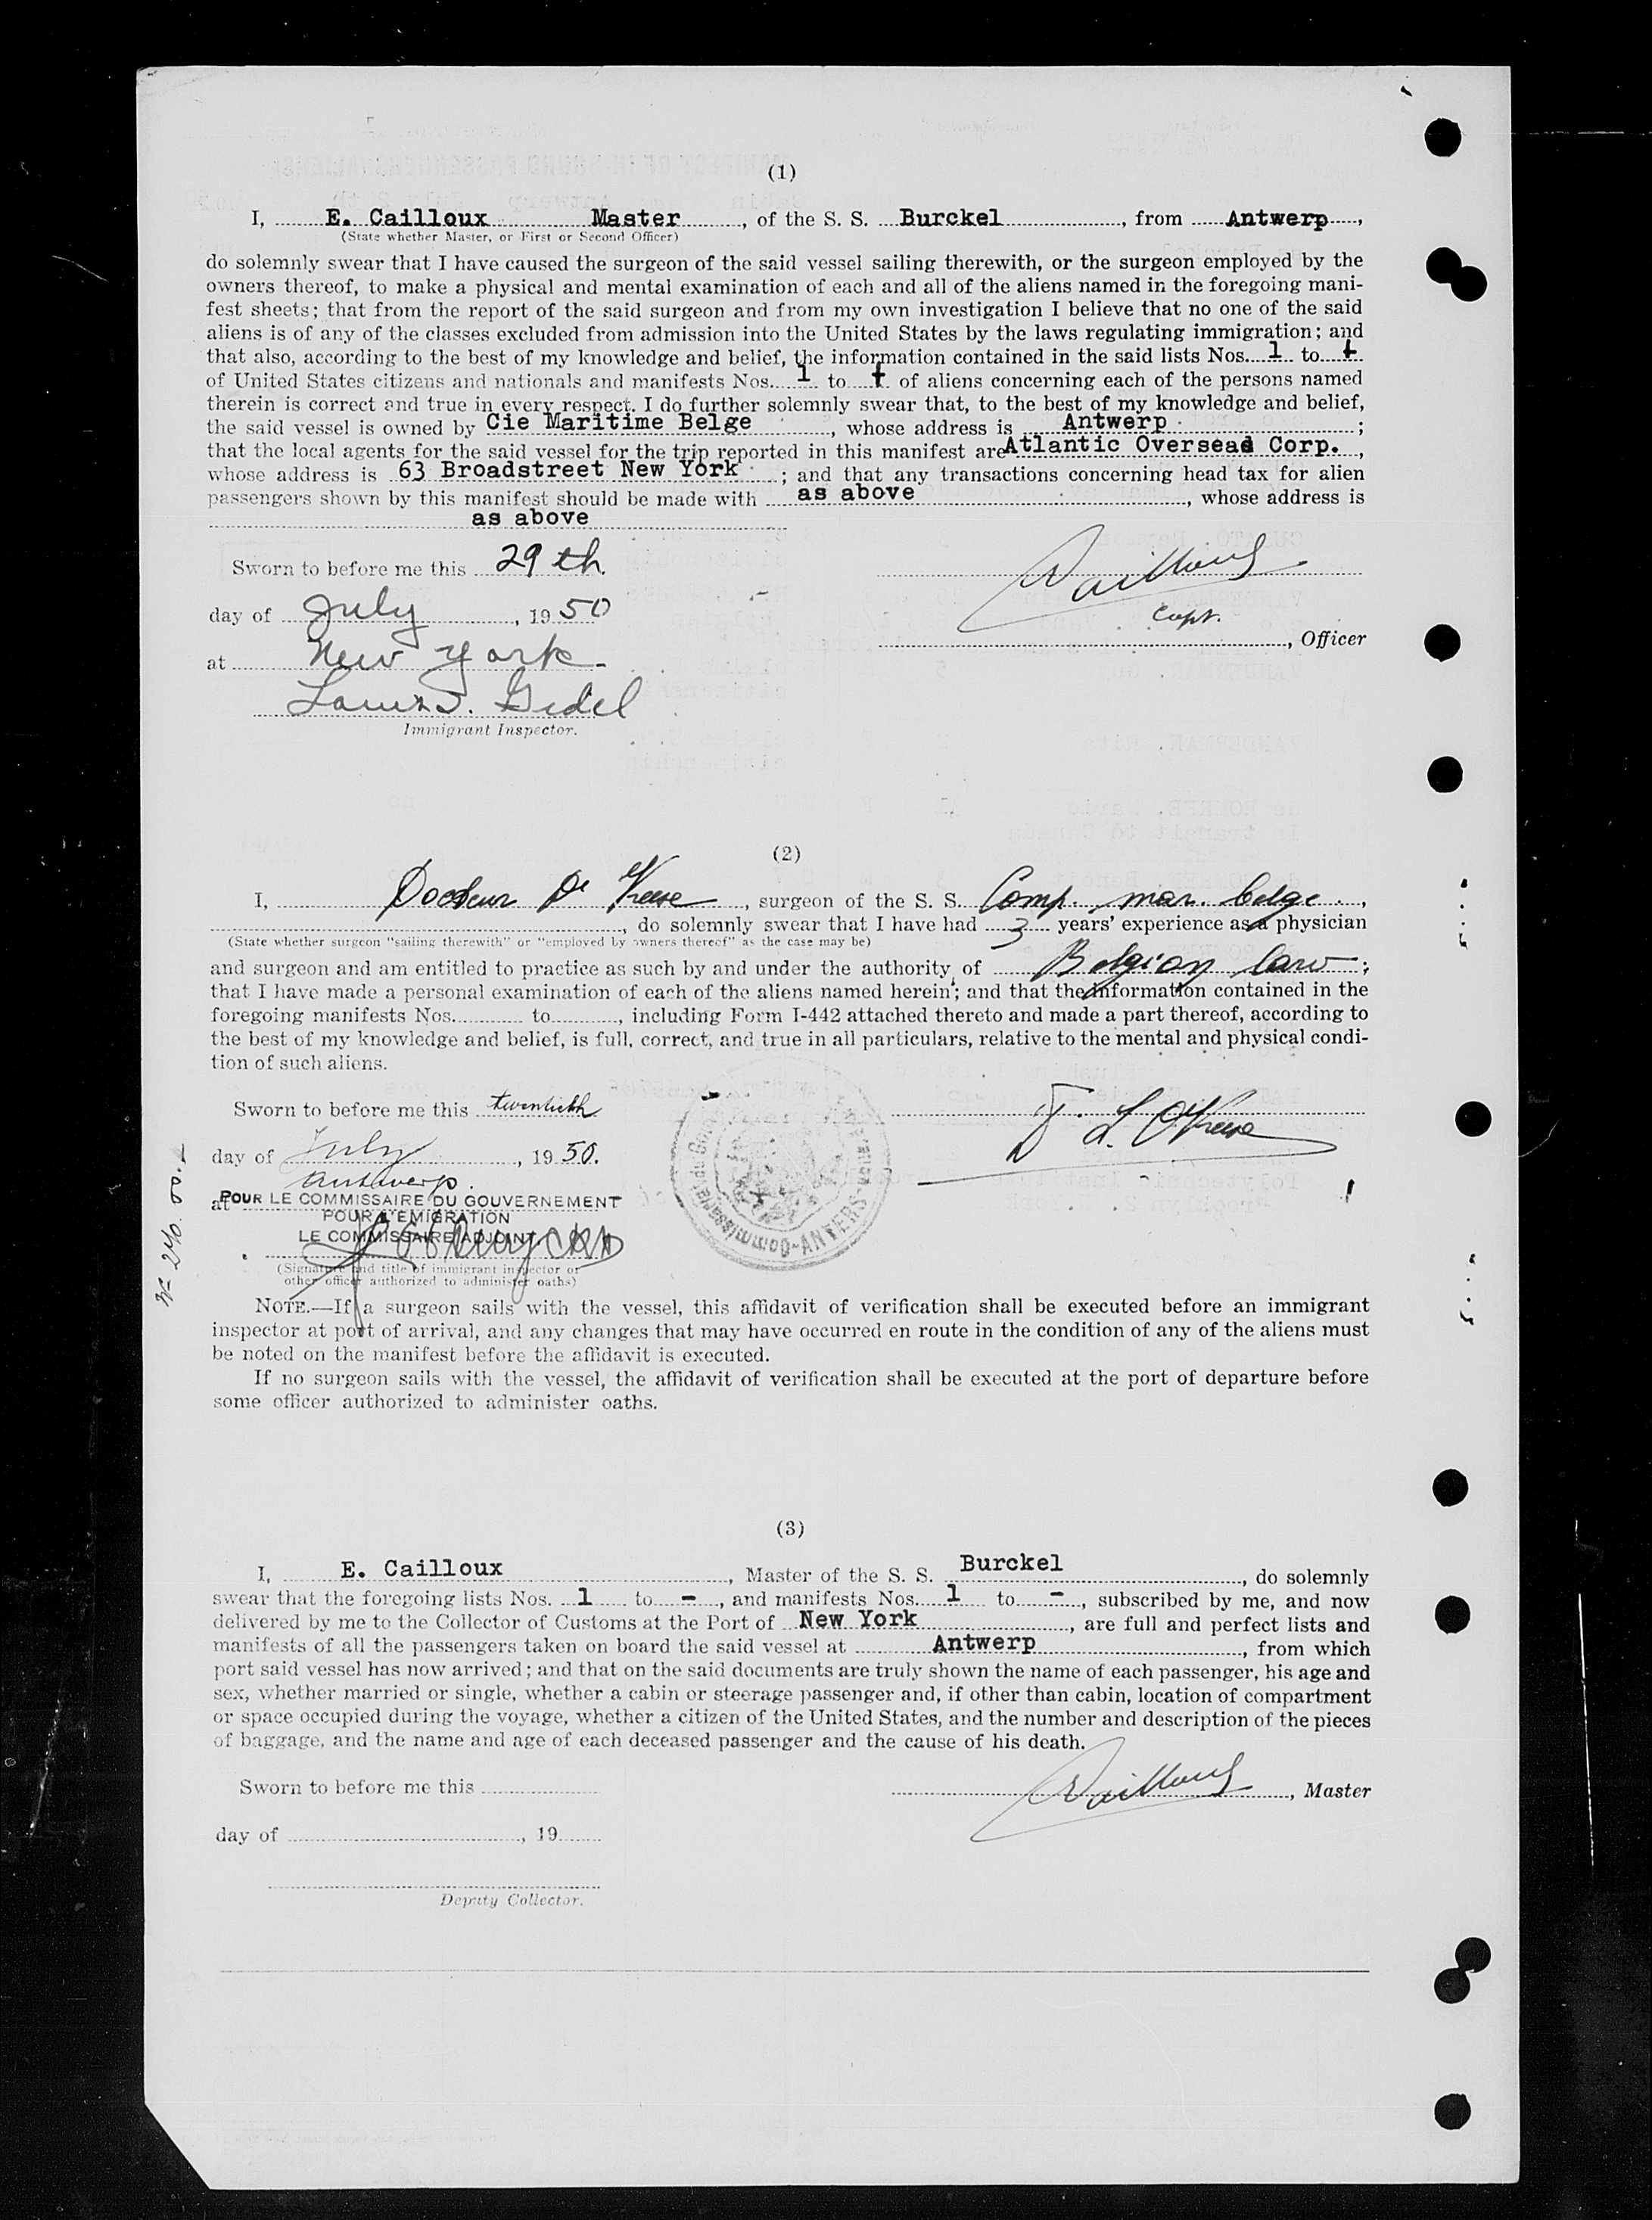 (1)
I, E. Cailloux Master, of the S. S. Burckel, from Antwerp,
(State whether Master, or First or Second Officer)
do solemnly swear that I have caused the surgeon of the said vessel sailing therewith, or the surgeon employed by the
owners thereof, to make a physical and mental examination of each and all of the aliens named in the foregoing mani-
fest sheets; that from the report of the said surgeon and from my own investigation I believe that no one of the said
aliens is of any of the classes excluded from admission into the United States by the laws regulating immigration; and
that also, according to the best of my knowledge and belief, the information contained in the said lists Nos. 1 to
of United States citizens and nationals and manifests Nos. 1 to of aliens concerning each of the persons named
therein is correct and true in every respect. I do further solemnly swear that, to the best of my knowledge and belief,
the said vessel is owned by Cie Maritime Belge, whose address is Antwerp;
that the local agents for the said vessel for the trip reported in this manifest are Atlantic Overseas Corp.,
whose address is 63 Broadstreet New York; and that any transactions concerning head tax for alien
passengers shown by this manifest should be made with as above, whose address is
as above
Sworn to before me this 29th.
day of July, 1950
Capt.
, Officer
at New York
Gidel
Immigrant Inspector.
(2)
I, Docteur, surgeon of the S. S. Comp. mar. belge.,
, do solemnly swear that I have had 3 years' experience as a physician
(State whether surgeon "sailing therewith" or "employed by owners thereof" as the case may be)
and surgeon and am entitled to practice as such by and under the authority of Belgian law;
that I have made a personal examination of each of the aliens named herein; and that the information contained in the
foregoing manifests Nos. to, including Form I-442 attached thereto and made a part thereof, according to
the best of my knowledge and belief, is full, correct, and true in all particulars, relative to the mental and physical condi-
tion of such aliens.
Sworn to before me this twentieth
day of July, 1950.
at Antwerp.
POUR LE COMMISSAIRE DU GOUVERNEMENT
POUR L'EMIGRATION
LE COMMISSAIRE ADJOINT,
(Signature and title of immigrant inspector or
other officer authorized to administer oaths)
NOTE.—If a surgeon sails with the vessel, this affidavit of verification shall be executed before an immigrant
inspector at port of arrival, and any changes that may have occurred en route in the condition of any of the aliens must
be noted on the manifest before the affidavit is executed.
If no surgeon sails with the vessel, the affidavit of verification shall be executed at the port of departure before
some officer authorized to administer oaths.
(3)
I, E. Cailloux, Master of the S. S. Burckel, do solemnly
swear that the foregoing lists Nos. 1 to -, and manifests Nos. 1 to -, subscribed by me, and now
delivered by me to the Collector of Customs at the Port of New York, are full and perfect lists and
manifests of all the passengers taken on board the said vessel at Antwerp, from which
port said vessel has now arrived; and that on the said documents are truly shown the name of each passenger, his age and
sex, whether married or single, whether a cabin or steerage passenger and, if other than cabin, location of compartment
or space occupied during the voyage, whether a citizen of the United States, and the number and description of the pieces
of baggage, and the name and age of each deceased passenger and the cause of his death.
Sworn to before me this
, Master
day of, 19
Deputy Collector.